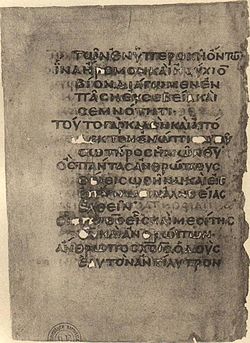 ΤΩΝ ΕΝ ΥΠΕΡΟΧΗ ΟΝΤΩ
ΙΝΑ ΗΡΕΜΟΝ ΚΑΙ ΗϹΥΧΙΟ
ΒΙΟΝ ΔΙΑΓΩΜΕΝ ΕΝ
ΠΑϹΗ ΕΥϹΕΒΕΙΑ ΚΑΙ
ϹΕΜΝΟΤΗΤΙ
ΤΟΥΤΟ ΓΑΡ ΚΑΛΟΝ ΚΑΙ ΑΠΟ
ΔΕΚΤΟΝ ΕΝΩΠΙΟΝ ΤΟΥ
ϹΩΤΗΡΟϹ ΗΜΩΝ ΘΥ
ΟϹ ΠΑΝΤΑϹ ΑΝΘΡΩΠΟΥϹ
ΘΕΛΕΙ ϹΩΘΗΝΑΙ ΚΑΙ ΕΙϹ
ΑΛΗΘΕΙΑϹ
ΕΛΘΕΙΝ
ΕΙϹ ΚΑΙ ΜΕϹΙΤΗϹ
ΘΥ ΚΑΙ ΑΝΘΡΩΠΩΝ
ΑΝΘΡΩΠΟϹ ΧϹ Ο ΔΟΥϹ
ΕΑΥΤΟΝ ΑΝΤΙΛΥΤΡΟΝ